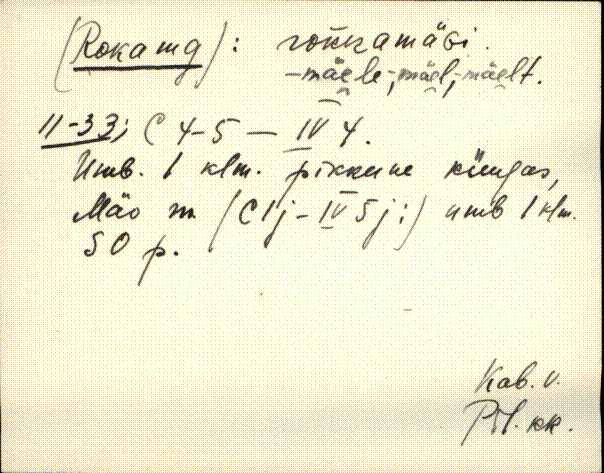 (Roka mg): rokkamäɢi.
-mäele, -mäel, -mäelt.
11-33; C 4-5 — IV 4.
Umb. 1 klm. pikkune küngas,
Mäo m (C 1 j - IV 5 j:) umb 1 klm.
SO p.
Kab. v.